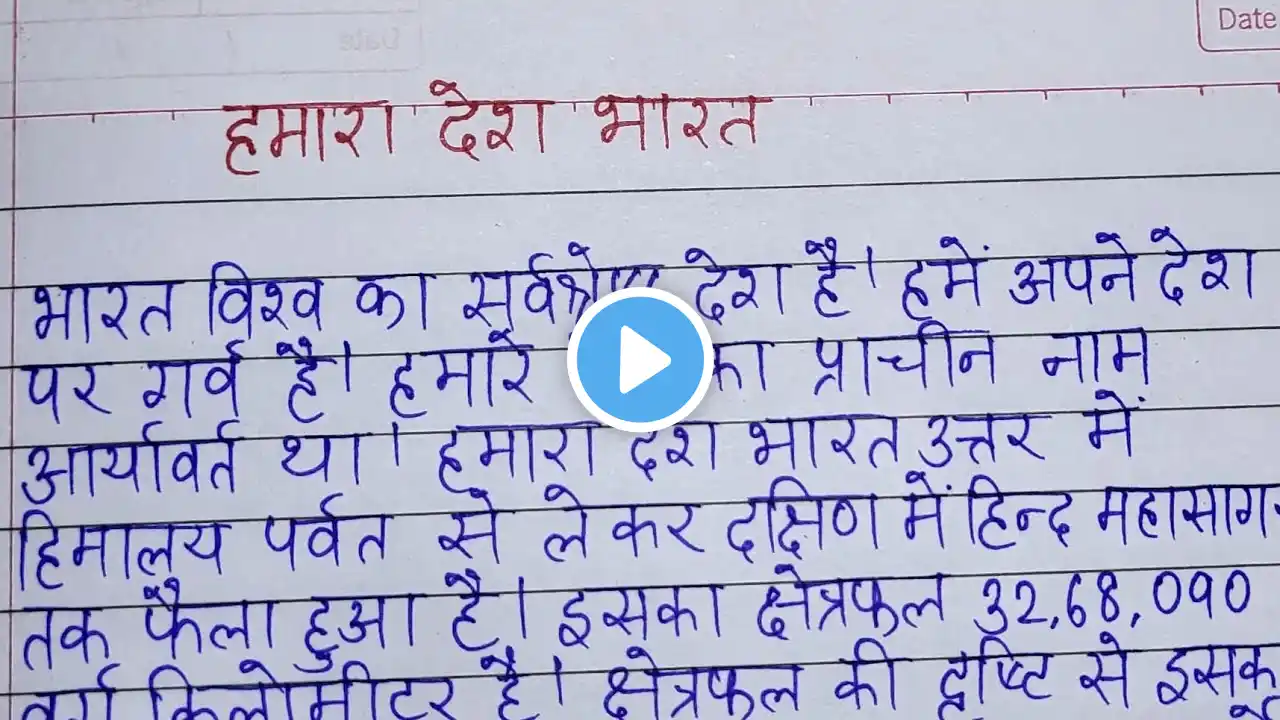 Date
हमारा देश भारत
भारत विश्व का सर्वश्रेष्ठ देश है। हमें अपने देश
पर गर्व है। हमारे का प्राचीन नाम
आर्यावर्त था। हमारा देश भारत उत्तर में
हिमालय पर्वत से लेकर दक्षिण में हिन्द महासाग
तक फैला हुआ है। इसका क्षेत्रफल 32,68,090
वर्ग किलोमीटर है। क्षेत्रफल की दृष्टि से